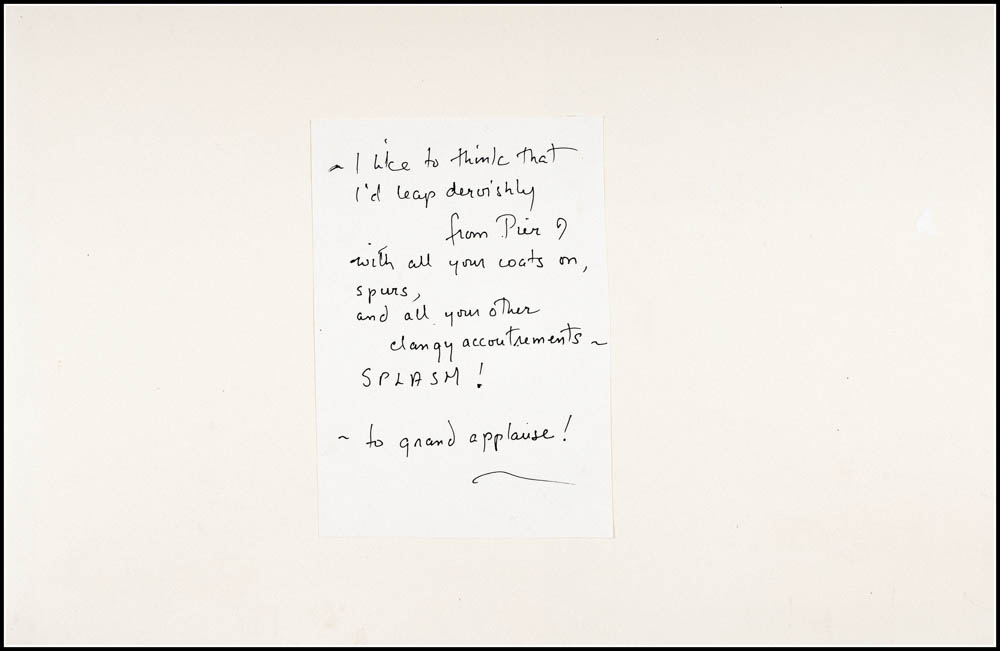 ~ I like to think that
I'd leap dervishly
from Pier 9
with all your coats on,
spurs,
and all your other
clangy accoutrements ~
SPLASH!
~ to grand applause!